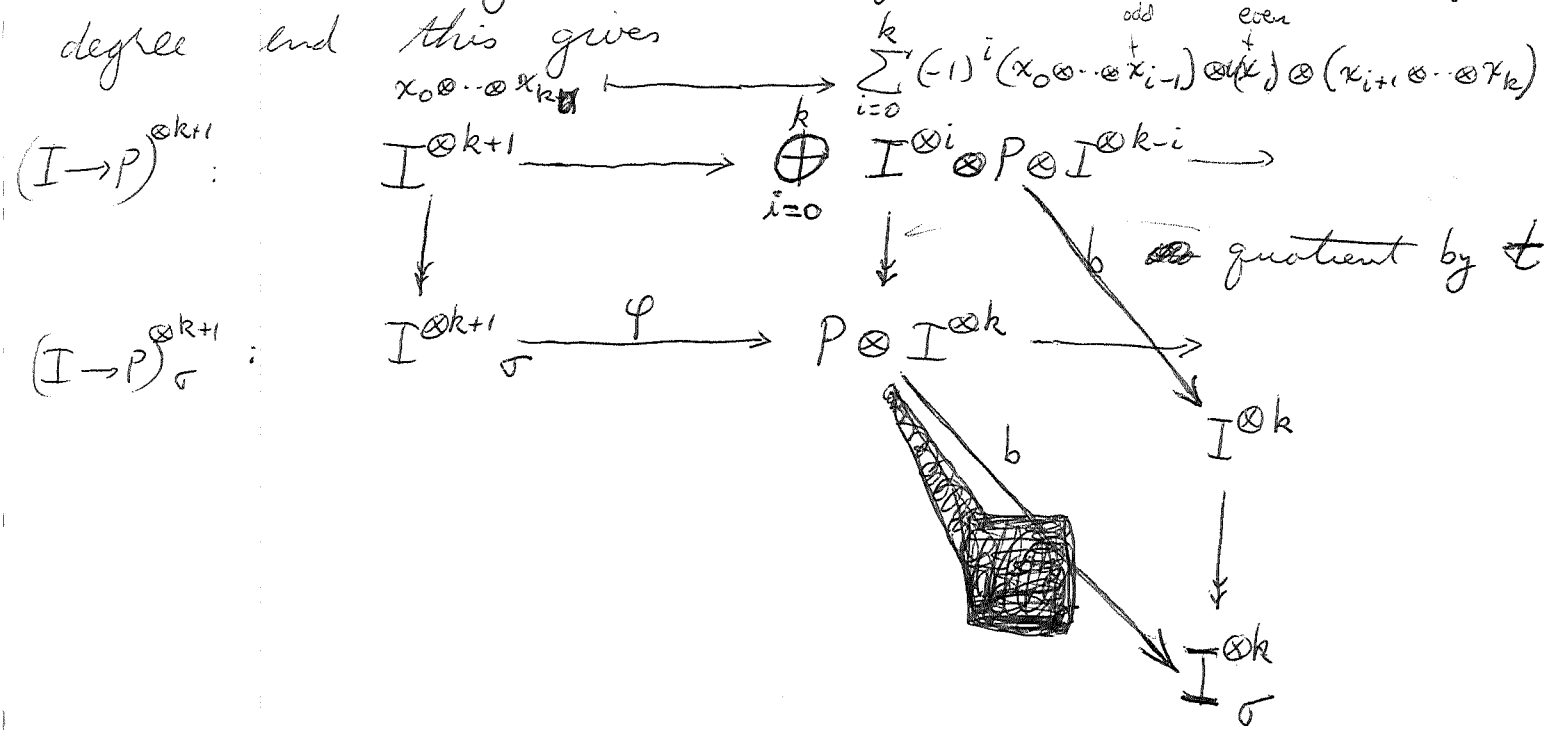 degree end this gives
odd even
x_0 ⊗ ·· ⊗ x_k ⟼ \sum_{i=0}^{k} (-1)^i (x_0 ⊗ ·· ⊗ x_{i-1}) ⊗ u(x_i) ⊗ (x_{i+1} ⊗ ·· ⊗ x_k)
(I → P)^{⊗k+1} : I^{⊗k+1} ⟶ \bigoplus_{i=0}^{k} I^{⊗i} ⊗ P ⊗ I^{⊗k-i} ⟶
b quotient by t
(I → P)^{⊗k+1}_σ : I^{⊗k+1}_σ \xrightarrow{φ} P ⊗ I^{⊗k} ⟶
I^{⊗k}
b
I^{⊗k}_σ